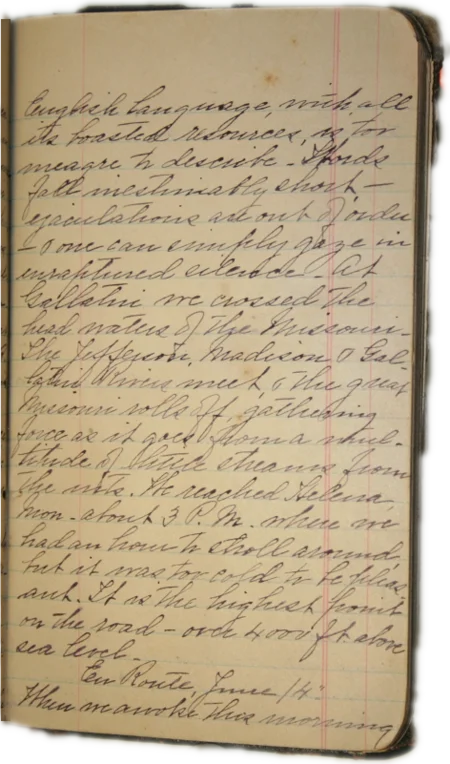 English language, with all
its boasted resources, is too
meagre to describe - Words
fall inestimably short -
ejaculations are out of order
- & one can simply gaze in
enraptured silence - At
Gallatin we crossed the
head waters of the Missouri -
The Jefferson, Madison & Gal-
latin Rivers meet, & the great
Missouri rolls off, gathering
force as it goes from a mul-
titude of little streams from
the mts. We reached Helena
Mon. about 3 P.M. where we
had an hour to stroll around,
but it was too cold to be pleas
ant. It is the highest point
on the road - over 4000 ft above
sea level -
En Route, June 14"
When we awoke this morning